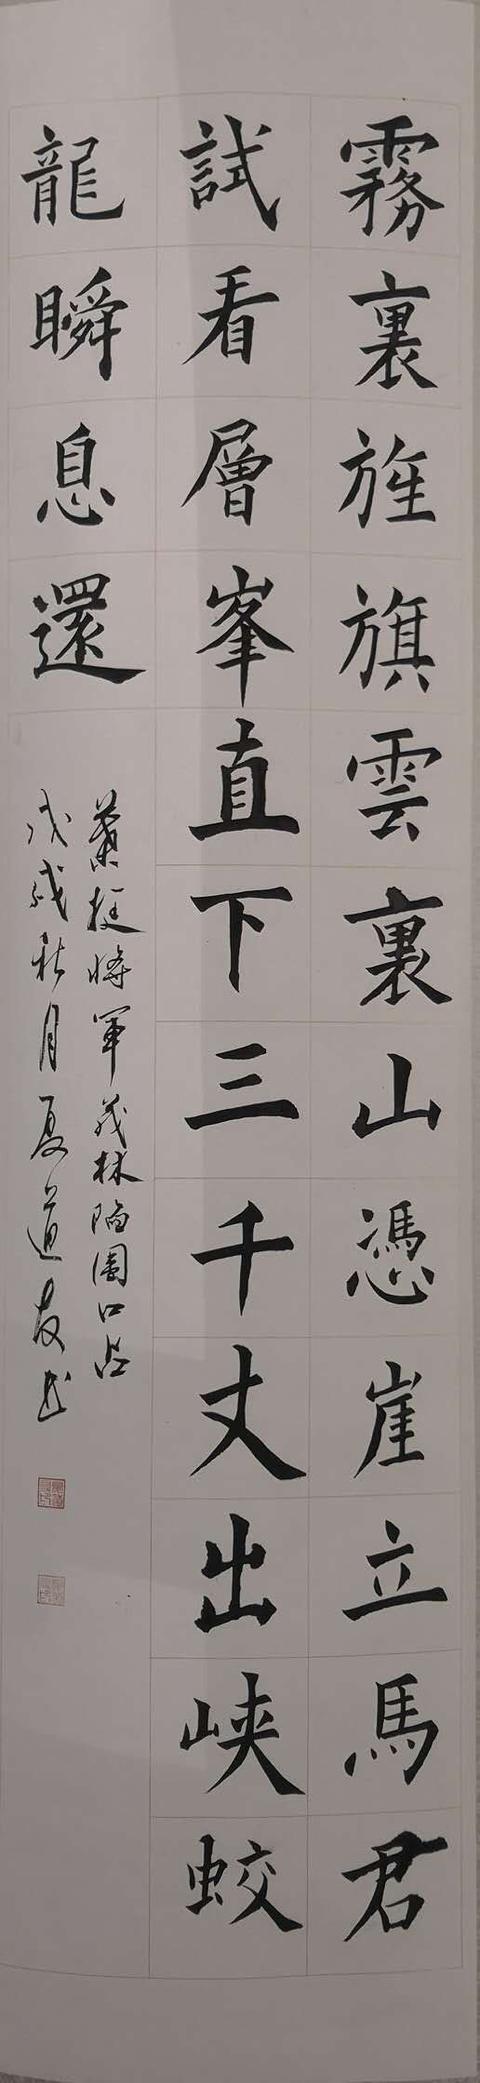 霧裏旌旗雲裏山憑崖立馬君
試看層峯直下三千丈出峽蛟
龍瞬息還
葉挺將軍茂林陷圍口占
戊戌秋月夏道友书